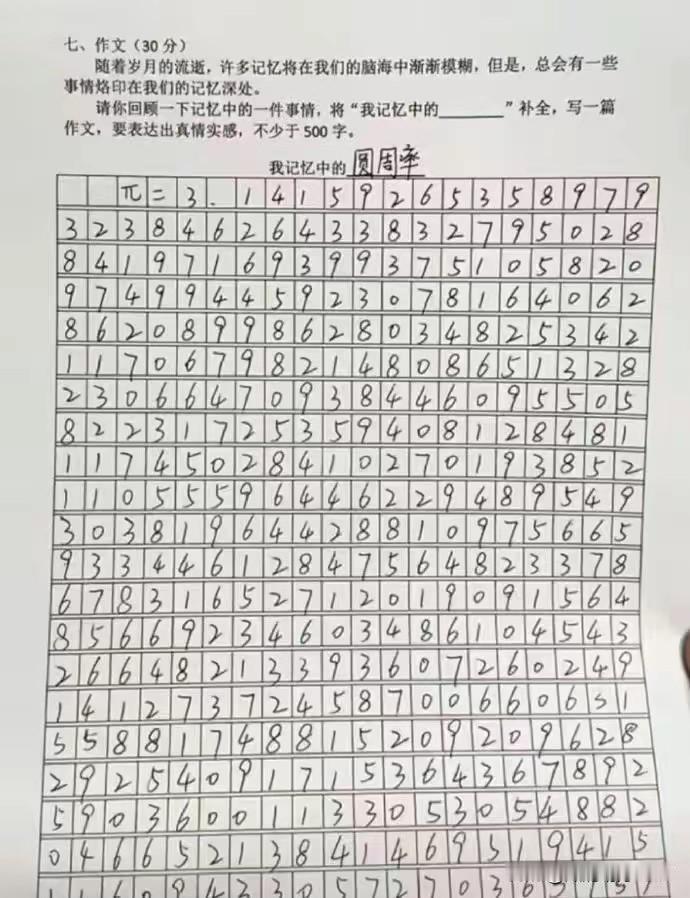 七、作文（30 分）
随着岁月的流逝，许多记忆将在我们的脑海中渐渐模糊，但是，总会有一些
事情烙印在我们的记忆深处。
请你回顾一下记忆中的一件事情，将“我记忆中的________”补全，写一篇
作文，要表达出真情实感，不少于 500 字。
我记忆中的 圆周率
π = 3 . 1 4 1 5 9 2 6 5 3 5 8 9 7 9
3 2 3 8 4 6 2 6 4 3 3 8 3 2 7 9 5 0 2 8
8 4 1 9 7 1 6 9 3 9 9 3 7 5 1 0 5 8 2 0
9 7 4 9 9 4 4 5 9 2 3 0 7 8 1 6 4 0 6 2
8 6 2 0 8 9 9 8 6 2 8 0 3 4 8 2 5 3 4 2
1 1 7 0 6 7 9 8 2 1 4 8 0 8 6 5 1 3 2 8
2 3 0 6 6 4 7 0 9 3 8 4 4 6 0 9 5 5 0 5
8 2 2 3 1 7 2 5 3 5 9 4 0 8 1 2 8 4 8 1
1 1 7 4 5 0 2 8 4 1 0 2 7 0 1 9 3 8 5 2
1 1 0 5 5 5 9 6 4 4 6 2 2 9 4 8 9 5 4 9
3 0 3 8 1 9 6 4 4 2 8 8 1 0 9 7 5 6 6 5
9 3 3 4 4 6 1 2 8 4 7 5 6 4 8 2 3 3 7 8
6 7 8 3 1 6 5 2 7 1 2 0 1 9 0 9 1 5 6 4
8 5 6 6 9 2 3 4 6 0 3 4 8 6 1 0 4 5 4 3
2 6 6 4 8 2 1 3 3 9 3 6 0 7 2 6 0 2 4 9
1 4 1 2 7 3 7 2 4 5 8 7 0 0 6 6 0 6 3 1
5 5 8 8 1 7 4 8 8 1 5 2 0 9 2 0 9 6 2 8
2 9 2 5 4 0 9 1 7 1 5 3 6 4 3 6 7 8 9 2
5 9 0 3 6 0 0 1 1 3 3 0 5 3 0 5 4 8 8 2
0 4 6 6 5 2 1 3 8 4 1 4 6 9 5 1 9 4 1 5